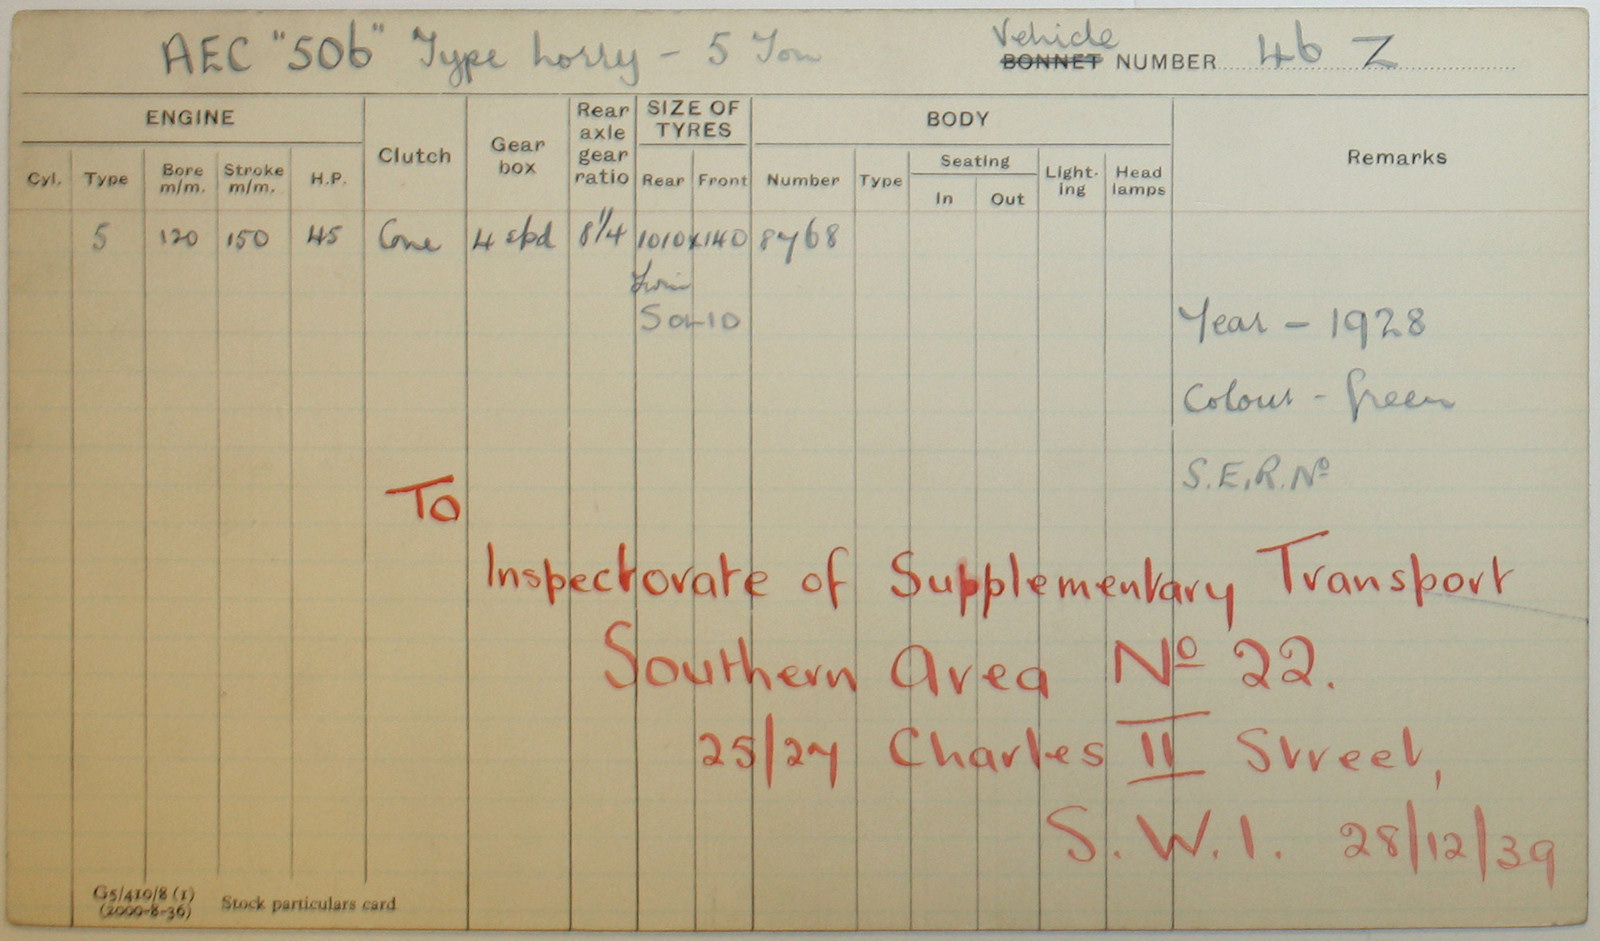 AEC "506" Type Lorry - 5 Ton
Vehicle
BONNET NUMBER 46 Z
ENGINE
Clutch
Gear box
Rear axle gear ratio
SIZE OF TYRES
BODY
Remarks
Cyl. Type Bore m/m. Stroke m/m. H.P. Rear Front Number Type Seating In Out Light-ing Head lamps
5 120 150 45 Cone 4 spd 8 1/4 1010x140 8768
Twin
SOLID
Year - 1928
Colour - Green
S.E.R. Nº
To
Inspectorate of Supplementary Transport
Southern Area Nº 22.
25/27 Charles II Street,
S.W.1. 28/12/39
G5/410/8 (1)
(2000-8-36)
Stock particulars card